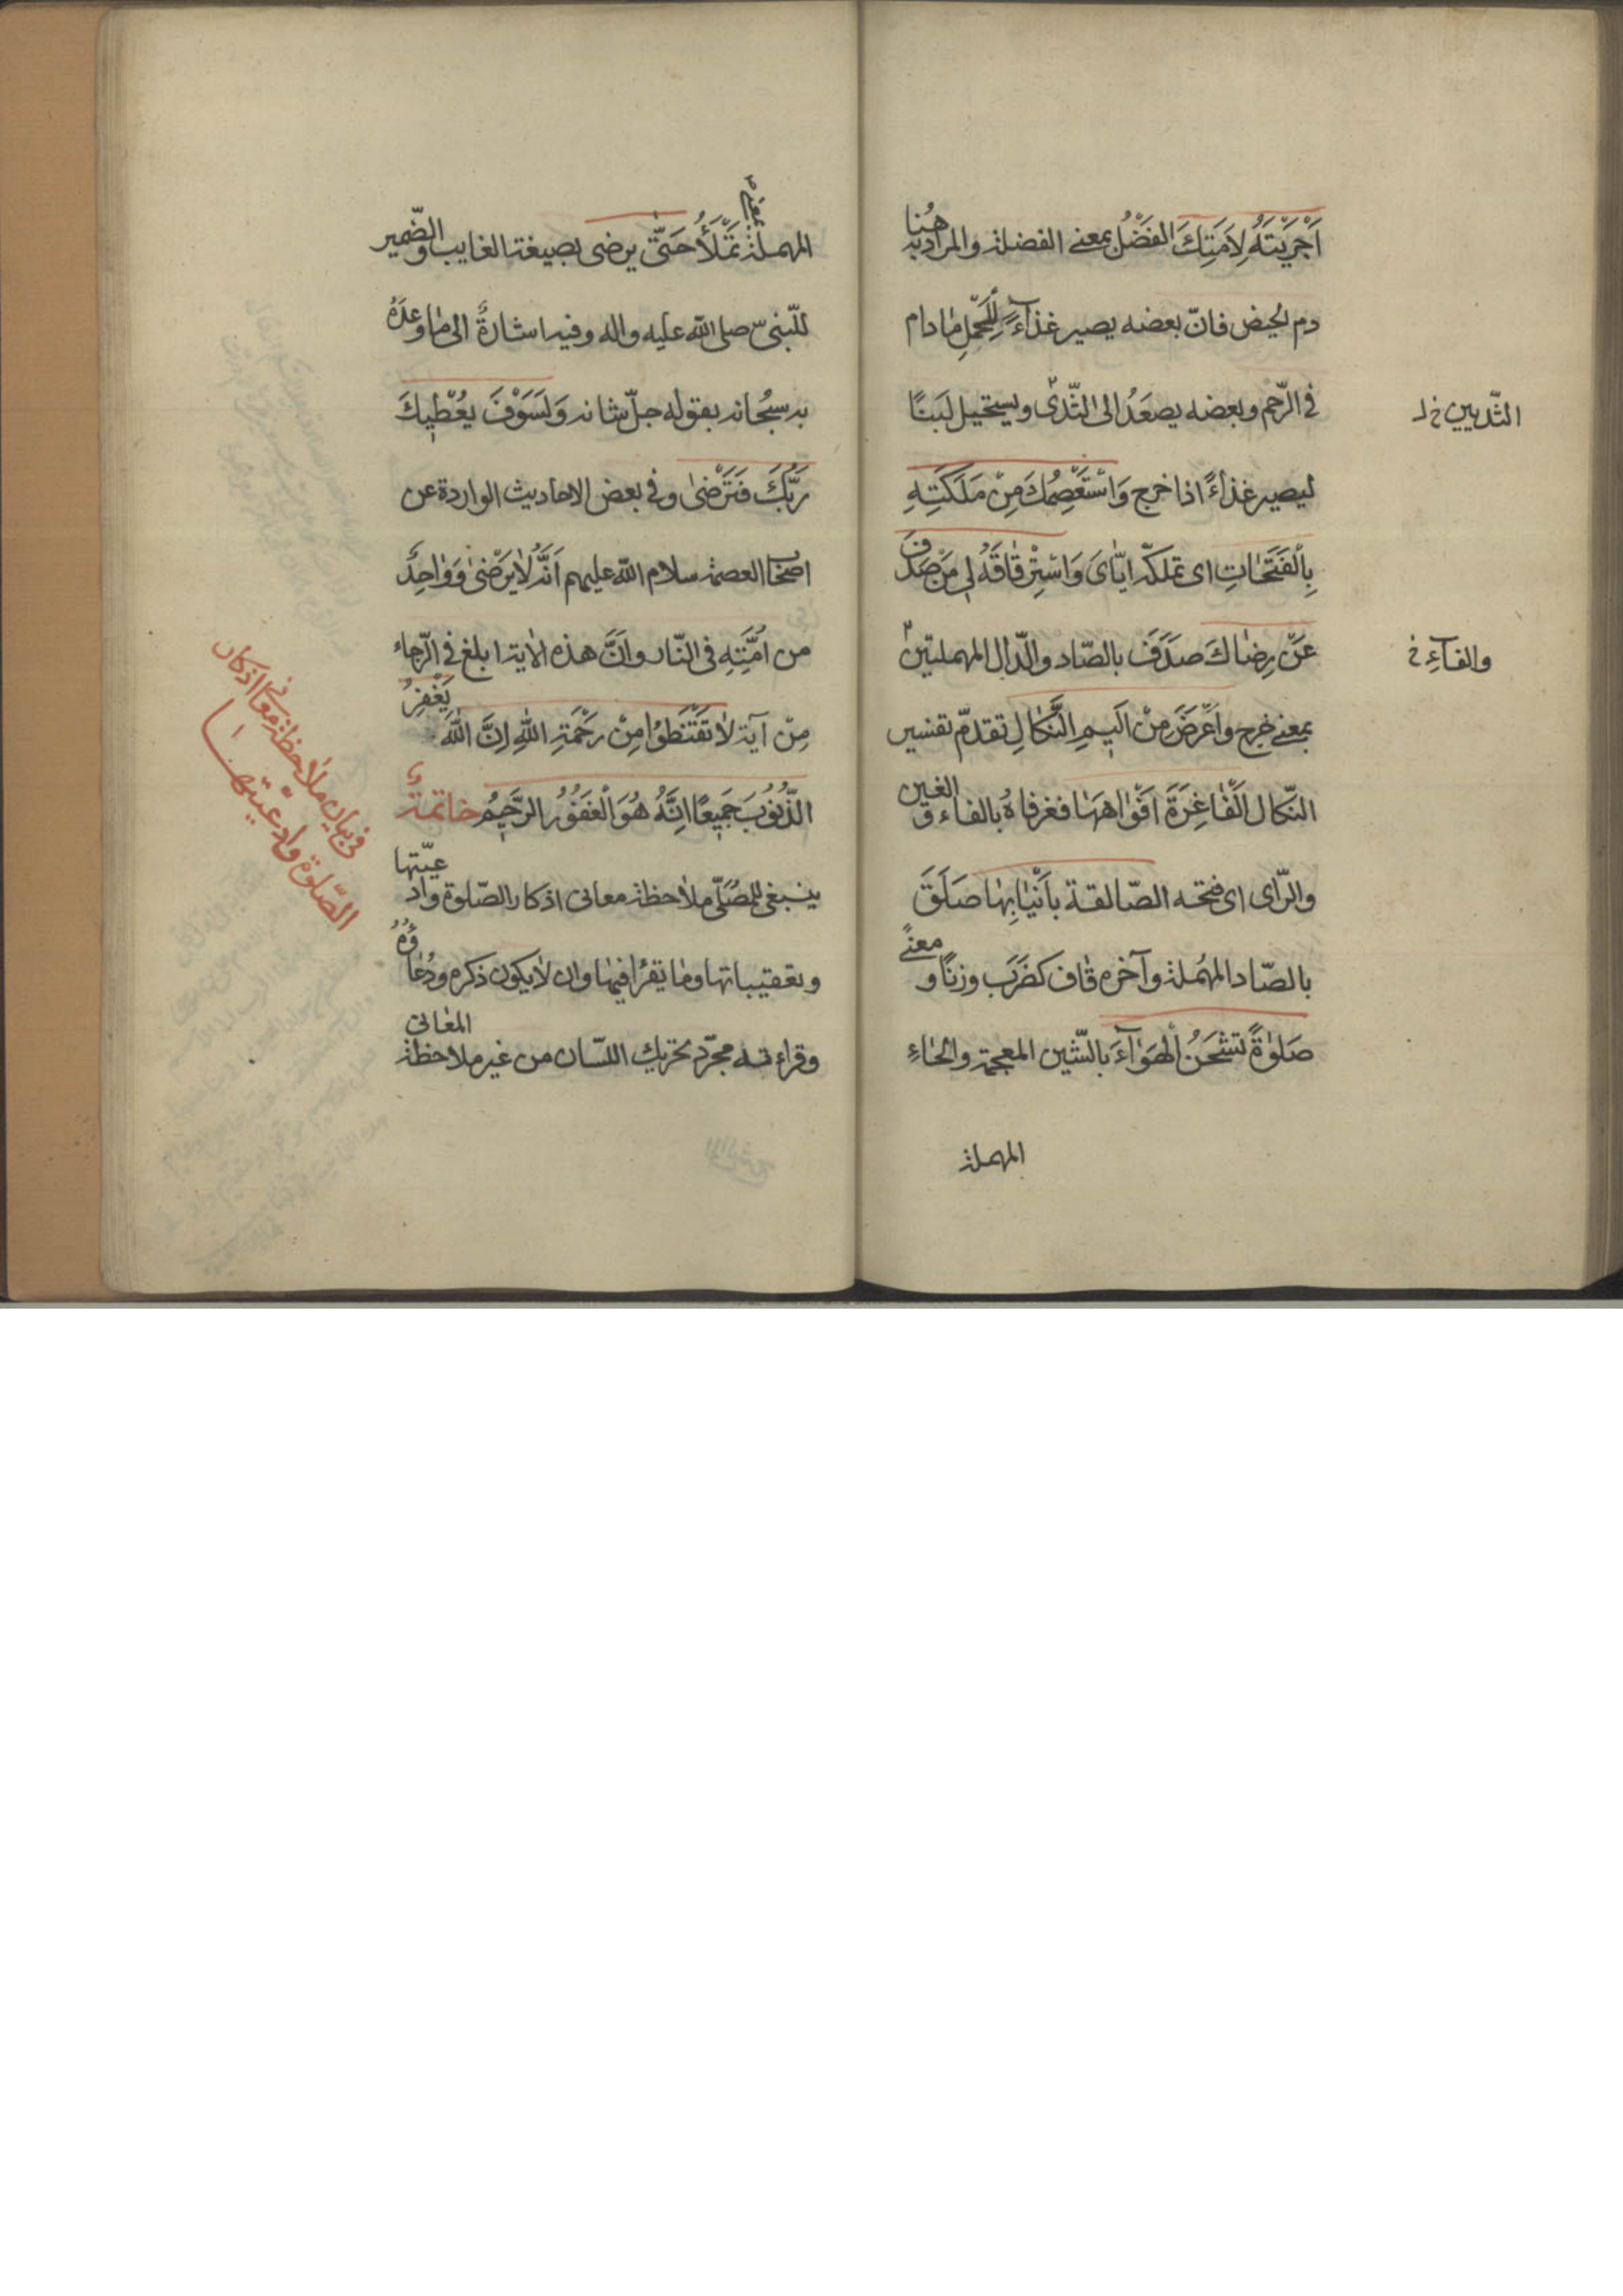 اَجْرَيْتَهُ لِاَمَتِكَ الفَضْلُ بمعنى الفضلة والمراد به هُنا
دم الحيض فانّ بعضه يصير غذآءً لِلْحَمْلِ مادام
في الرّحم وبعضه يصعَدُ الى الثّدى ويستحيل لَبَنًا
الثّديين خ ل
ليصير غذاءً اذا خرج وَاسْتَعْصِمُكَ مِنْ مَلَكَتِهِ
بِالْفَتَحٰاتِ اى تملّكه ايّاىَ وَاسْتِرْقٰاقَهُ لى مَنْ صَدَفَ
عَنْ رِضٰاكَ صدَفَ بالصّاد والدّال المهملتين
والفآءِ خ
بمعنى خرج واَعْرَضَ مِنْ اَليمِ النَّكٰالِ تقدّم تفسير
النّكال اَلْفٰاغِرَةَ اَفْوٰاهَهٰا فغرفاهُ بالفاء والغين
والرّاى اى فتحه الصّالقة بأَنْيٰابِهٰا صَلَقَ
بالصّاد المهُملة وآخره قاف كضَرَبَ وزنًا ومعنًى
صَلوٰةً تَشْحَنُ الْهَوٰآءَ بالشّين المعجمة والحاءِ
المهملة
المهملة تَمْلَأُ حَتّى يرضى بصيغة الغايب والضّمير
للنّبىّ صلى اللّه عليه واله وفيه اشارةٌ الى مٰا وعدَهُ
به سبُحانه بقوله جلّ شانه وَلَسَوْفَ يُعْطيكَ
رَبُّكَ فَتَرْضىٰ وفى بعض الاحاديث الواردة عن
اصحاب العصمة سلام اللّه عليهم اَنَّهُ لٰا يَرْضىٰ وَوٰاحِدٌ
من اُمَّتِهِ فى النّار واَنَّ هذه الاٰية ابلغ فى الرّجاء
مِنْ آية لٰا تَقْنَطوُا مِنْ رَحْمَةِ اللّٰهِ اِنَّ اللّٰهَ يَغْفِرُ
الذُّنوُبَ جَميعًا اِنَّهُ هُوَ الْغَفوُرُ الرَّحيمُ خاتمةٌ
ينبغى للمُصَلّى ملٰاحظة معانى اذكار الصّلوة وادعيّتها
وتعقيباتها ومٰا يقرُا فيهٰا وان لٰا يكون ذكره ودُعاؤُهُ
وقراءته مجرّد تحريك اللسّان من غير ملاحظة المعٰانى
فى بيان ملٰاحظة معانى اذكار
الصّلوة وادعيتها